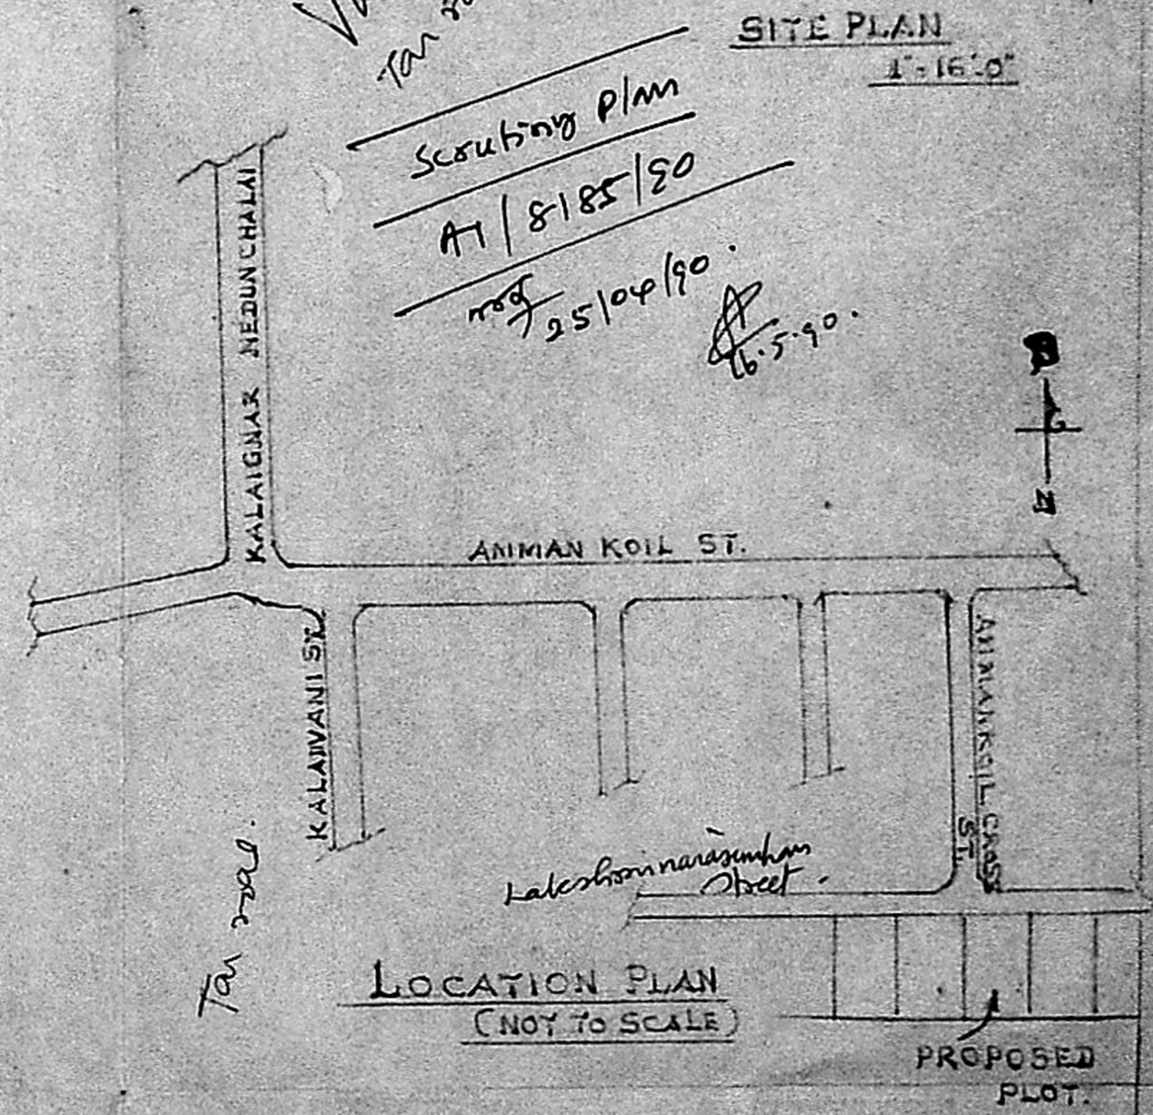 Tar
SITE PLAN
1"=16'-0"
Scrutiny Plan
A1/8185/90
25/04/90.
16.5.90.
KALAIGNAR NEDUNCHALAI
AMMAN KOIL ST.
KALAIVANI ST.
AMMANKOIL CROSS
ST.
Lakshminarasimhan
Street.
Tar
LOCATION PLAN
(NOT TO SCALE)
PROPOSED
PLOT.